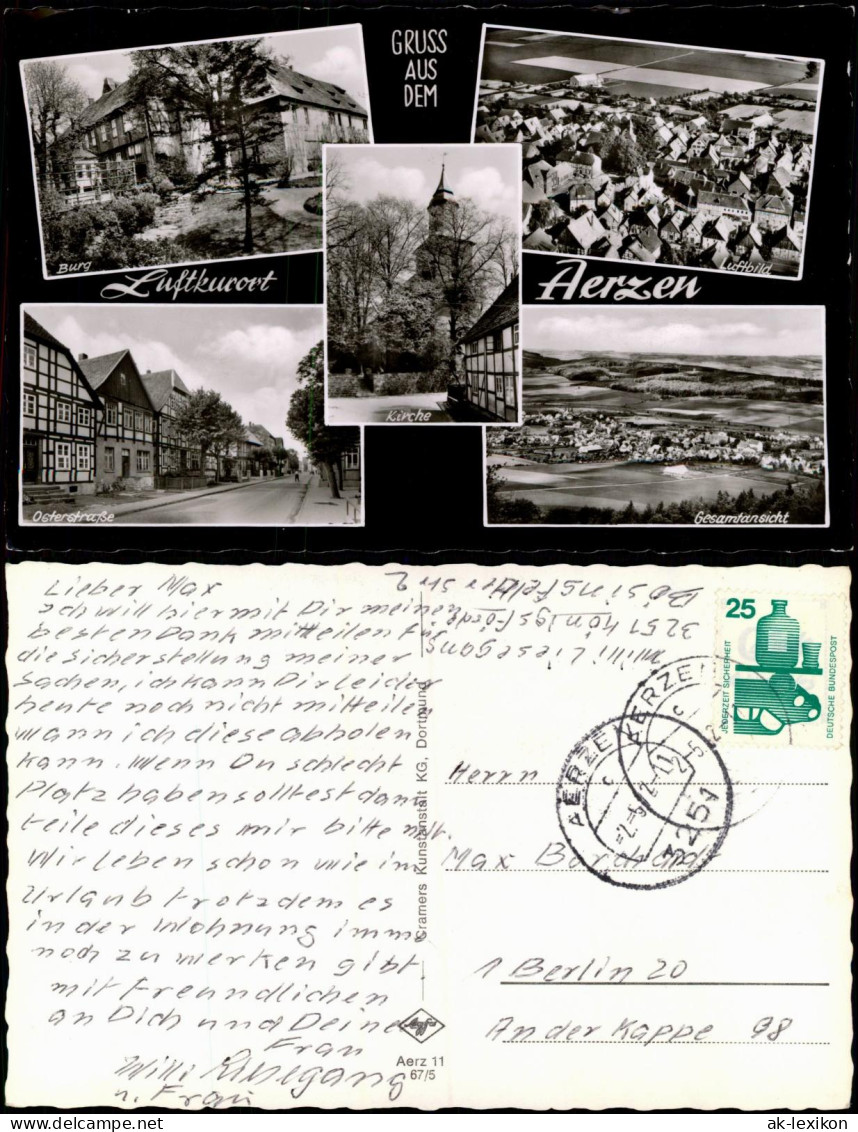 GRUSS
AUS
DEM
Burg
Luftkurort
Aerzen
Luftbild
Kirche
Osterstraße
Gesamtansicht
Lieber Max
Ich will hiermit Dir meinen
besten Dank mitteilen für
die sicherstellung meine
Sachen, ich kann Dir leider
heute noch nicht mitteile
wann ich diese abholen
kann. Wenn Du schlecht
Platz haben solltest dann
teile dieses mir bitte mit.
Wir leben schon wie im
Urlaub trotzdem es
in der Wohnung imme
noch zu werken gibt
mit Freundlichen
an Dich und Deine
Frau
Willi Liesegang
u. Frau
Willi Liesegang
3251 Königsförde
Bösingfelder Str 2
Cramers Kunstanstalt KG, Dortmund
Agfa
Aerz 11
67/5
25
JEDERZEIT SICHERHEIT
DEUTSCHE BUNDESPOST
AERZEN
c
3251
AERZEN
c
Herrn
Max
1 Berlin 20
An der Kappe 98
ak-lexikon.com